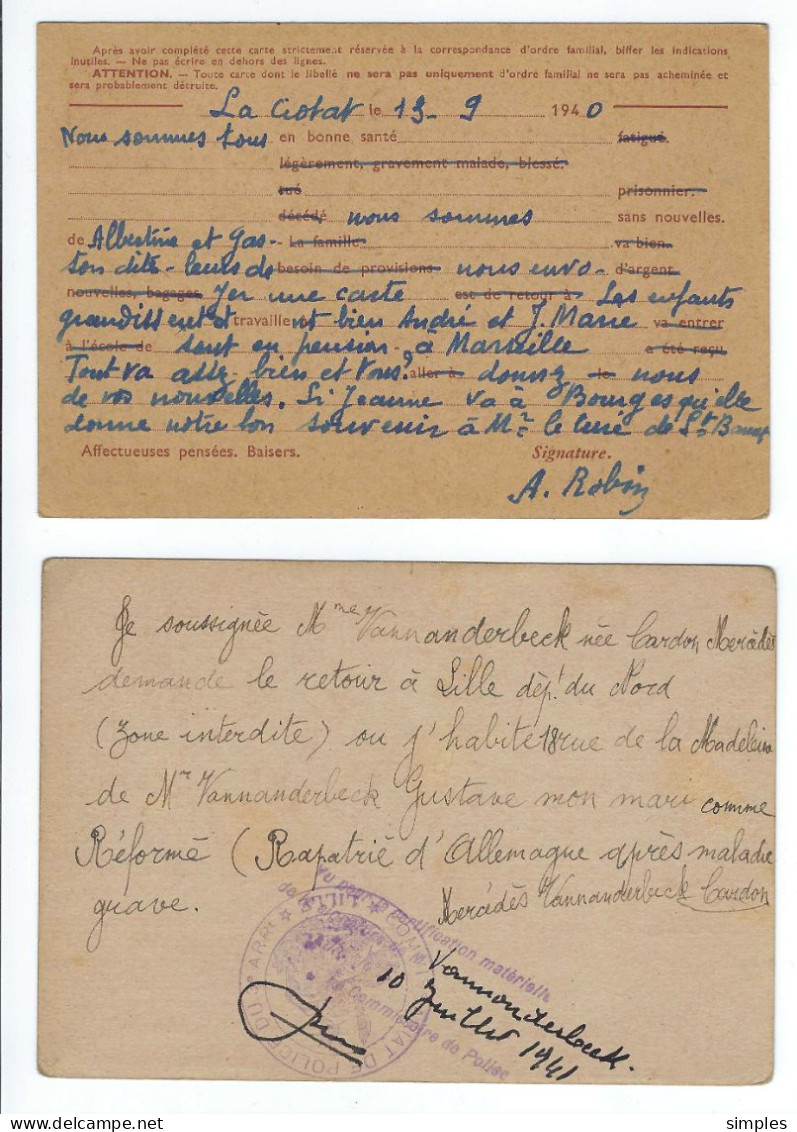 Après avoir complété cette carte strictement réservée à la correspondance d'ordre familial, biffer les indications
inutiles. — Ne pas écrire en dehors des lignes.
ATTENTION. — Toute carte dont le libellé ne sera pas uniquement d'ordre familial ne sera pas acheminée et
sera probablement détruite.
La Ciotat le 13-9 1940
Nous sommes tous en bonne santé fatigué.
légèrement, gravement malade, blessé.
tué prisonnier.
décédé nous sommes sans nouvelles.
de Albertine et Gas- La famille va bien.
ton dites-leurs de besoin de provisions nous envo- d'argent
nouvelles, bagages yer une carte est de retour à Les enfants
grandissent et travaillent bien André et J. Marie va entrer
à l'école de sont en pension à Marseille a été reçu
Tout va assez bien et vous? aller à donnez le nous
de vos nouvelles. Si Jeanne va à Bourges qu'elle
donne notre bon souvenir à Mr le curé de St
Affectueuses pensées. Baisers. Signature.
A. Robin
Je soussignée Mme Vannanderbeck née Cardon Mercédès
demande le retour à Lille dép! du Nord
(Zone interdite) ou j'habite 18 rue de la Madeleine
de Mr Vannanderbeck Gustave mon mari comme
Réformé (Rapatrié d'Allemagne après maladie
grave.
Mercédès Vannanderbeck Cardon
Vu pour la certification matérielle
Le Commissaire de Police
COMMISSARIAT DE POLICE DU ARRt
LILLE
Vannanderbeck.
10 Juillet 1941
simples